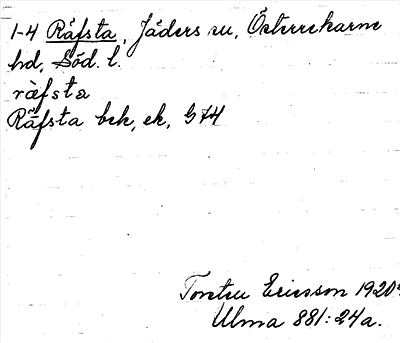 1-4 Räfsta, Jäders sn, Österrekarne
hd, Söd. l.
räfsta
Räfsta bck, ek, G74
Torsten Ericsson 1920
Ulma 881:24a.